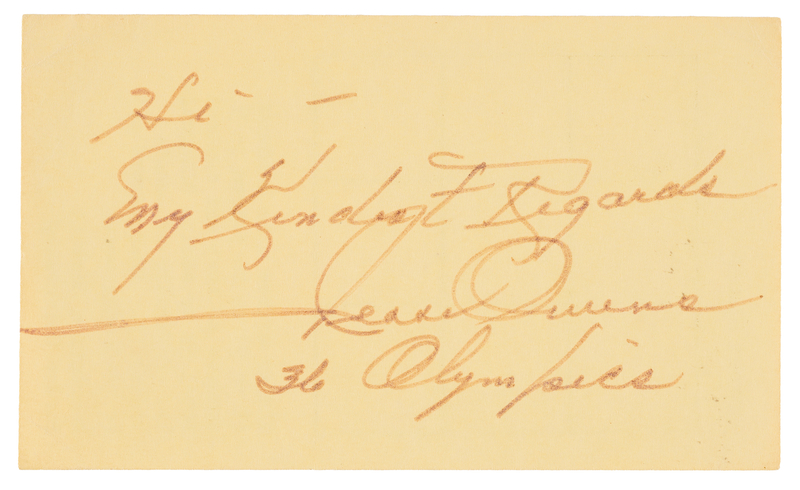 Hi -
My Kindest Regards
Jesse Owens
36 Olympics